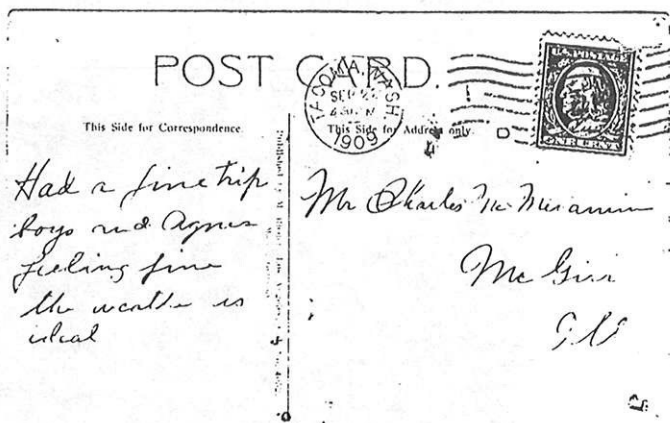 POST CARD.
TACOMA, WASH.
SEP 2
4 30 P M
1909
U.S. POSTAGE
ONE CENT
This Side for Correspondence.
This Side for Address only.
Had a fine trip
boys and Agnes
feeling fine
the weathe is
ideal
Mr Charles
Mc Girr
Ill